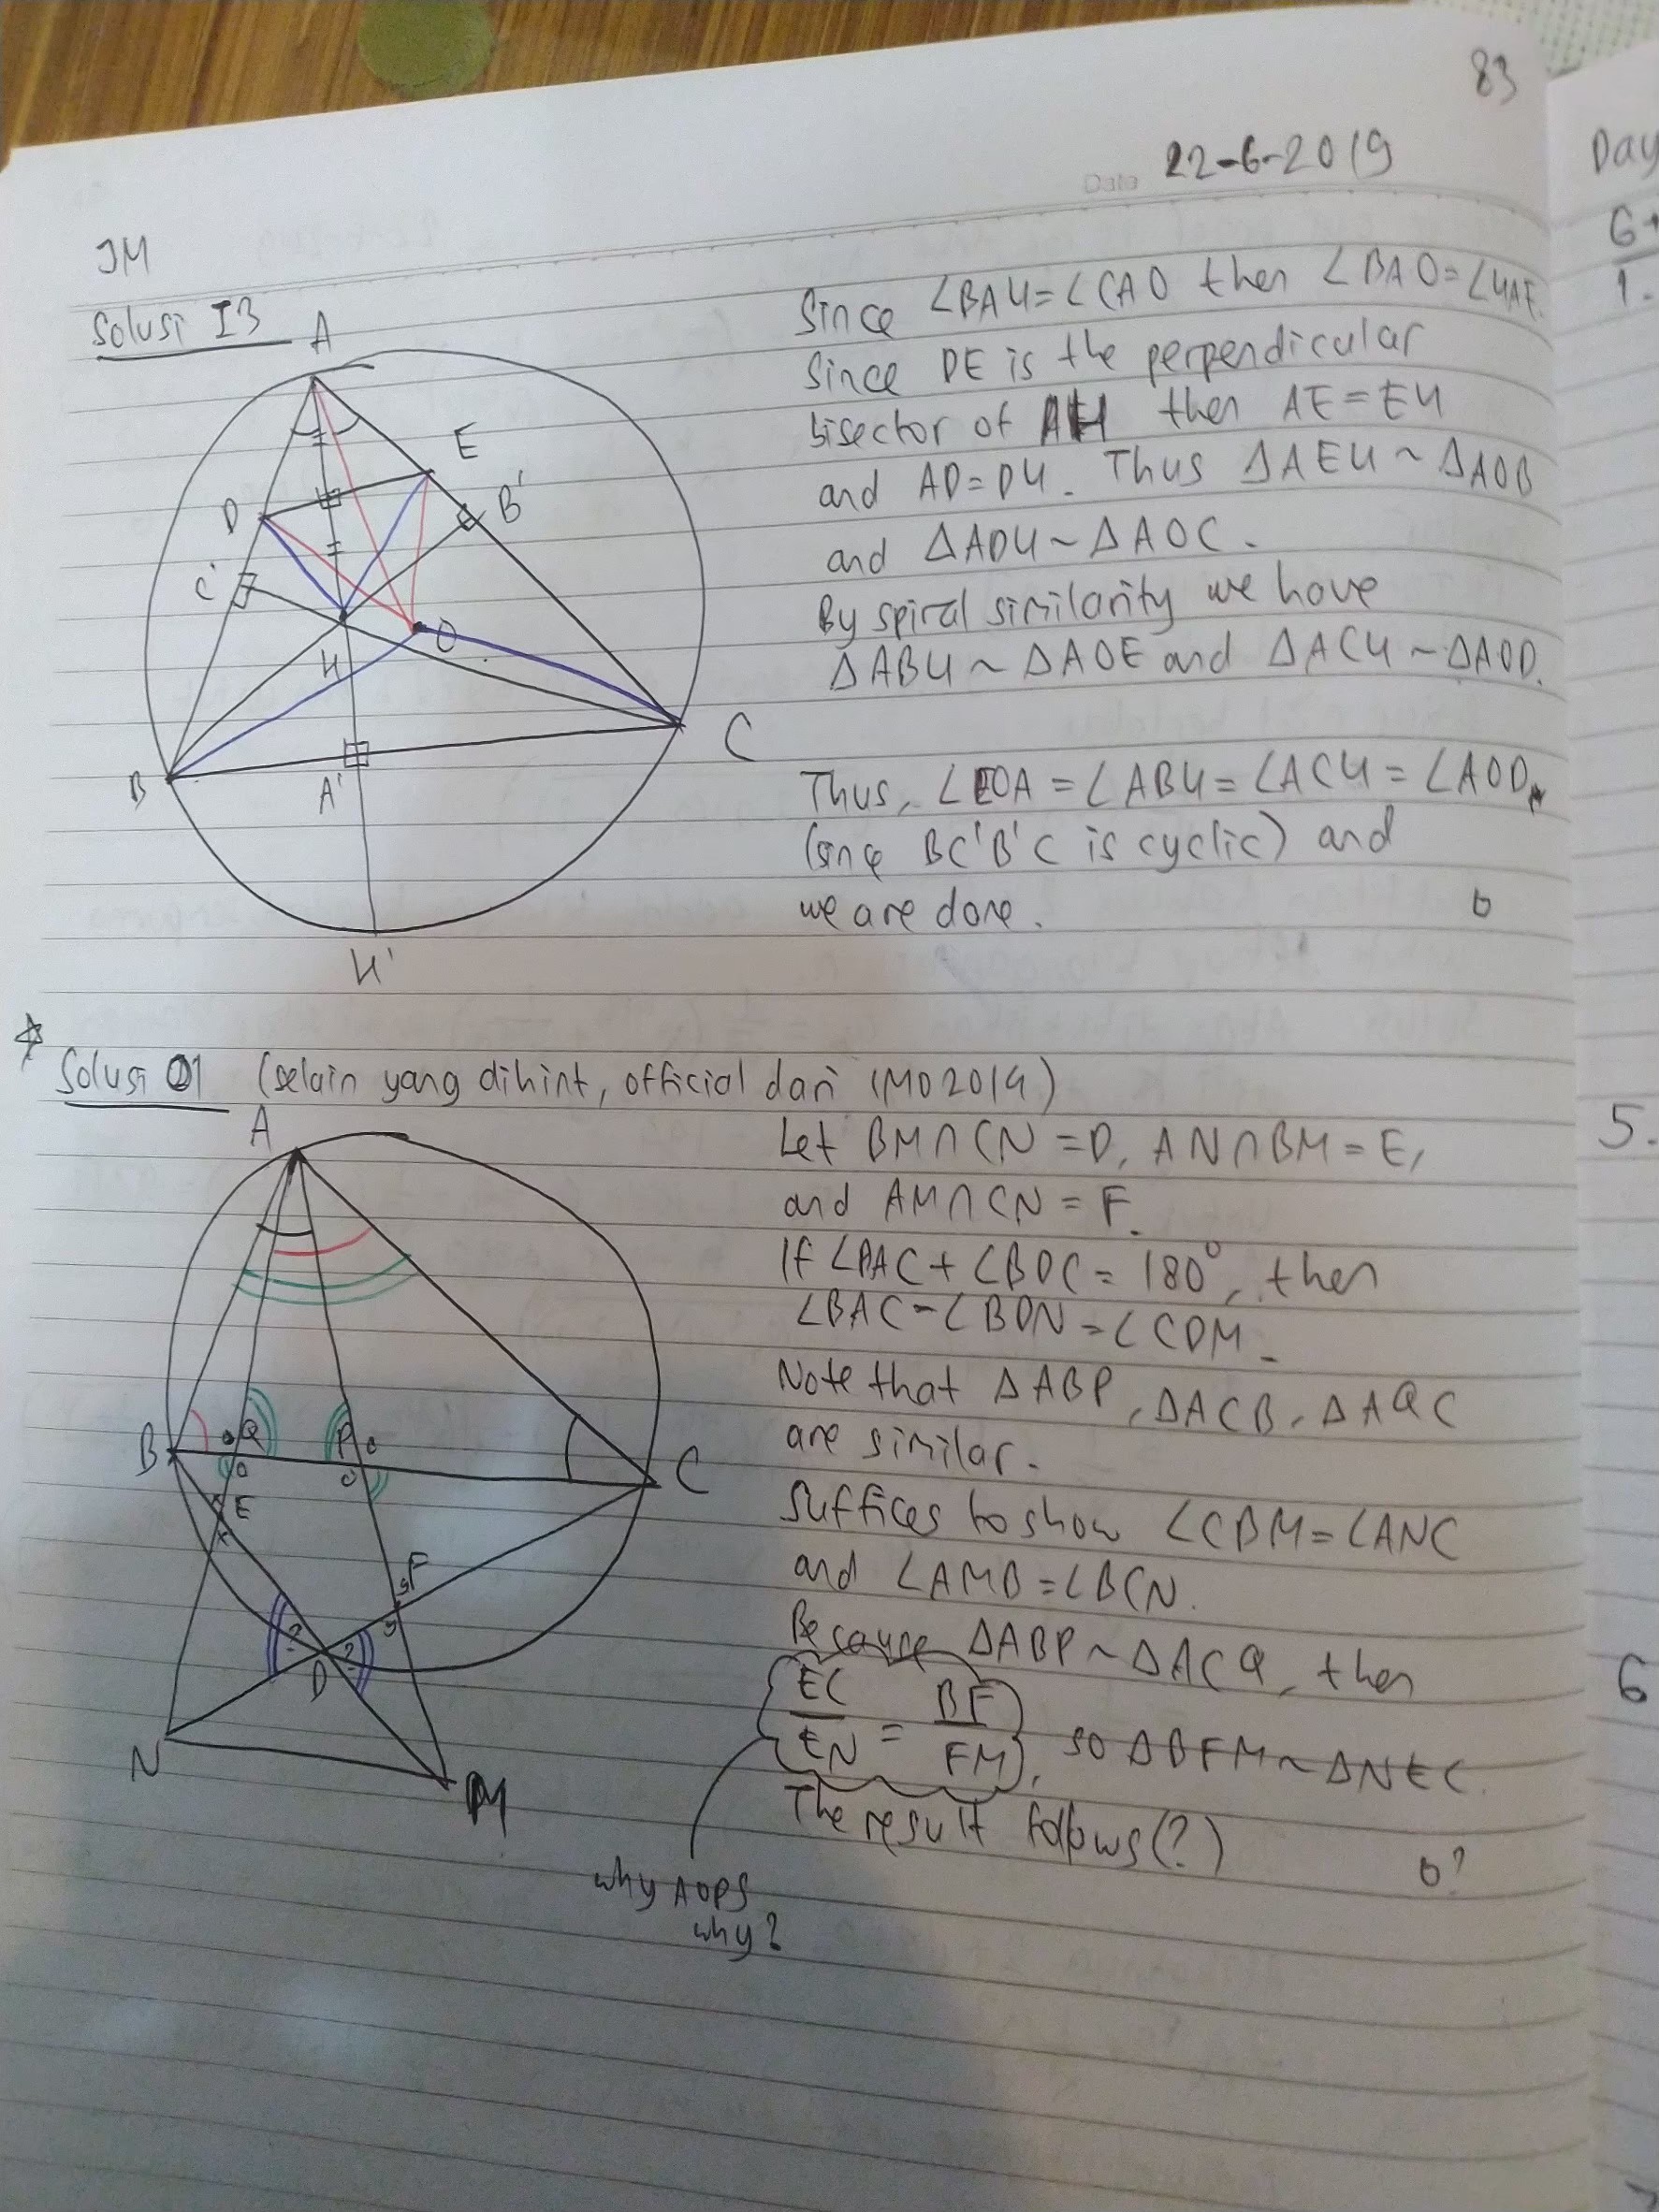 83
Date 22-6-2019
JM
Solusi I3
Since ∠BAH=∠CAO then ∠BAO=∠HAE.
Since DE is the perpendicular
bisector of AH then AE=EH
and AD=DH. Thus ΔAEH~ΔAOB
and ΔADH~ΔAOC.
By spiral similarity we have
ΔABH~ΔAOE and ΔACH~ΔAOD.
Thus, ∠EOA=∠ABH=∠ACH=∠AOD,
(since BC'B'C is cyclic) and
we are done.
A
E
D
B'
C'
O
H
C
B
A'
H'
Solusi O1 (selain yang dihint, official dari IMO2014)
Let BM∩CN=D, AN∩BM=E,
and AM∩CN=F.
If ∠BAC+∠BDC=180°, then
∠BAC=∠BDN=∠CDM.
Note that ΔABP, ΔACB, ΔAQC
are similar.
Suffices to show ∠CBM=∠ANC
and ∠AMB=∠BCN.
Because ΔABP~ΔACQ, then
EC/EN = BF/FM, so ΔBFM~ΔNEC.
The result follows(?)
why AOPS
why?
A
B
Q
P
C
E
x
F
? ?
D
N
M
Day
G+
1.
5.
6